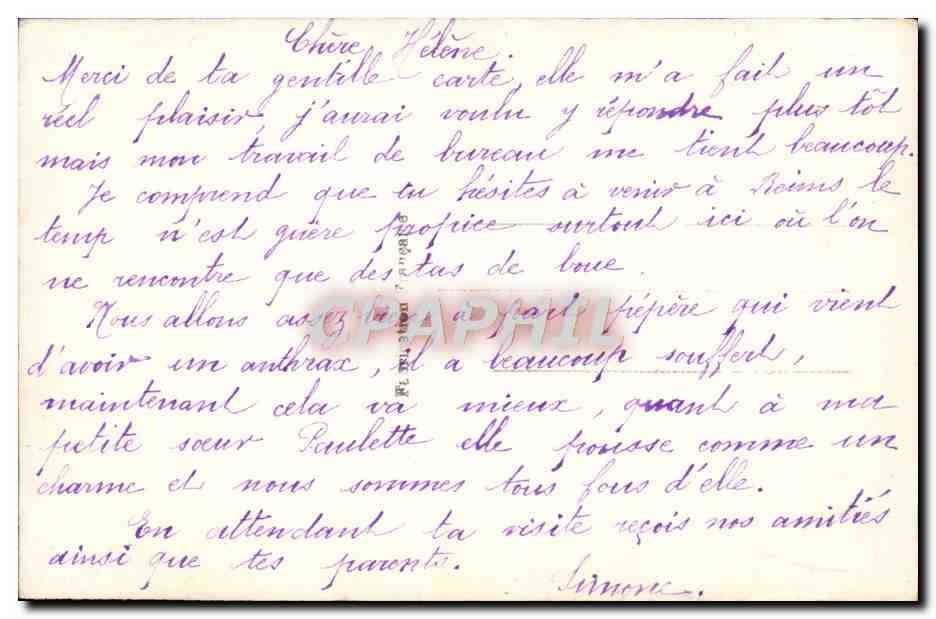 Chère Hélène.
Merci de ta gentille carte, elle m'a fait un
réel plaisir, j'aurai voulu y répondre plus tôt
mais mon travail de bureau me tient beaucoup.
Je comprend que tu hésites à venir à Reims le
temp n'est guère propice surtout ici où l'on
ne rencontre que des tas de boue.
Nous allons assez bien à part pépère qui vient
d'avoir un anthrax, il a beaucoup souffert,
maintenant cela va mieux, quant à ma
petite sœur Paulette elle pousse comme un
charme et nous sommes tous fous d'elle.
En attendant ta visite reçois nos amitiés
ainsi que tes parents.
Simone.
CPAPHIL